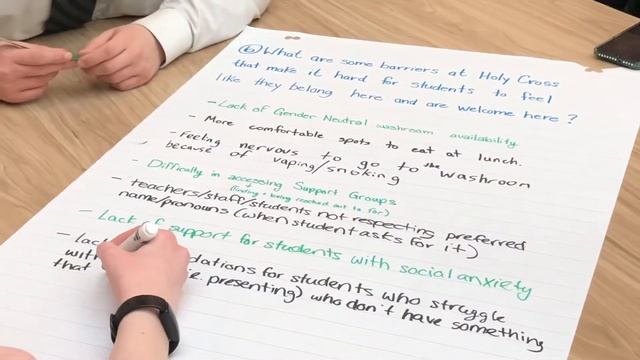 ⑥ What are some barriers at Holy Cross
that make it hard for students to feel
like they belong here and are welcome here?
- Lack of Gender Neutral washroom availability.
- More comfortable spots to eat at lunch.
- Feeling nervous to go to the washroom
because of vaping/smoking
- Difficulty in accessing Support Groups
(finding + being reached out to for)
- teachers/staff/students not respecting preferred
name/pronouns (when student asks for it)
- Lack of support for students with social anxiety
- lack dations for students who struggle
with (ie. presenting) who don't have something
that